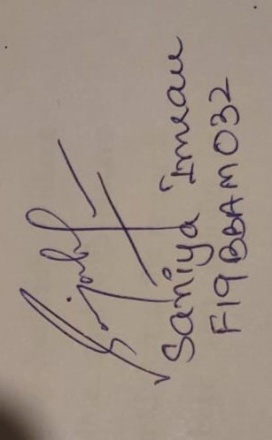 Saniya Imran
F19BBAM032